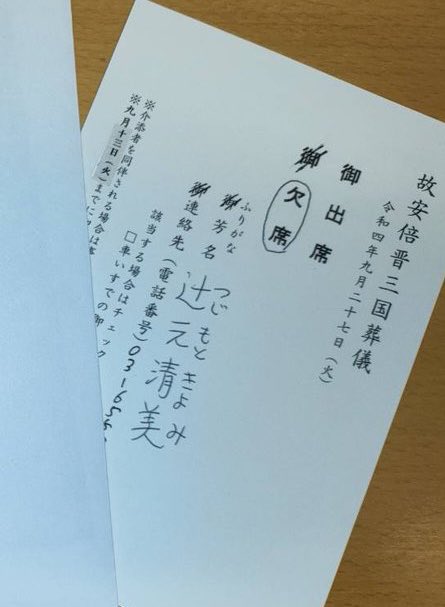 故安倍晋三国葬儀
令和四年九月二十七日(火)
御出席
御欠席
ふりがな つじもときよみ
御芳名 辻元清美
御連絡先(電話番号)03-65
該当する場合はチェック
□車いすでの御
※介添者を同伴される場合は
※九月十三日(火)までに